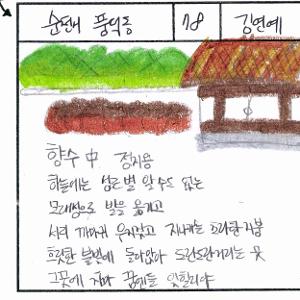 순천 풍덕동 78 김연예
향수 中 정지용
하늘에는 성근 별 알 수도 없는
모래성으로 발을 옮기고
서리 까마귀 우지짖고 지나가는 초라한 지붕
흐릿한 불빛에 돌아앉아 도란도란거리는 곳
그곳에 차마 꿈엔들 잊힐리야